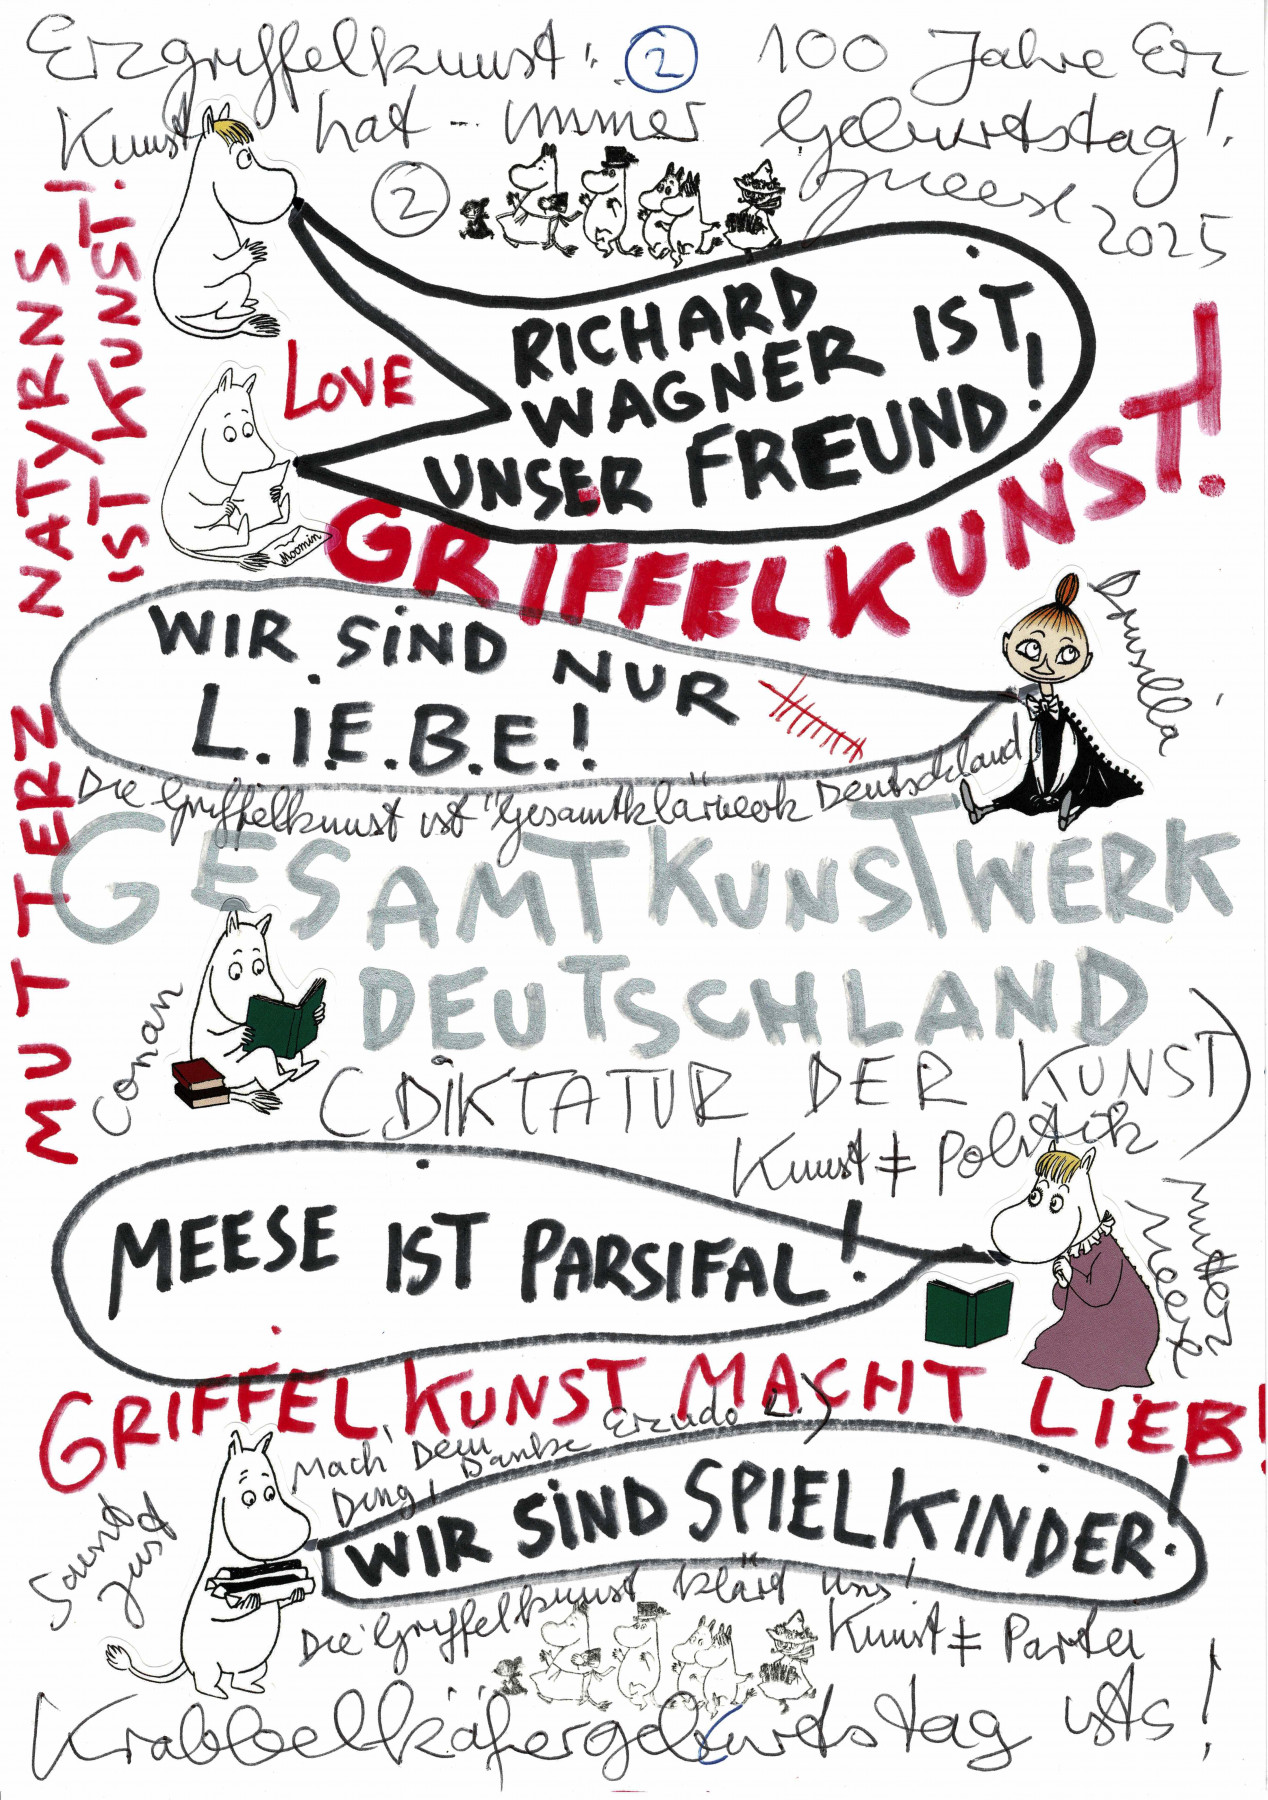 Erzgriffelkunst: ② 100 Jahre Erz
Kunst hat - immer Geburtstag!
② Meese 2025
NATYRNS
IST KUNST!
RICHARD
WAGNER IST
UNSER FREUND!
LOVE
Moomin
GRIFFELKUNST!
WIR SIND NUR
L.I.E.B.E.!
Drusilla
Die Griffelkunst ist "Gesamtklärwerk Deutschland
MUTTERZ
GESAMTKUNSTWERK
DEUTSCHLAND
Conan
(DIKTATUR DER KUNST)
Kunst ≠ Politik
MEESE IST PARSIFAL!
Mutterz
Meese
GRIFFELKUNST MACHT LIEB!
Mach' Dein
Ding, Danke Erzudo L.)
Saint
Just
WIR SIND SPIELKINDER!
Die Griffelkunst klärt uns!
Kunst ≠ Partei
Krabbelkäfergeburtstag ists!